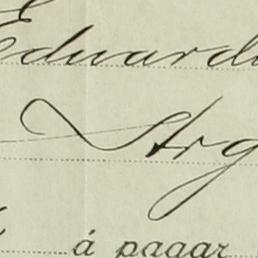 Eduard
Arg
á pagar